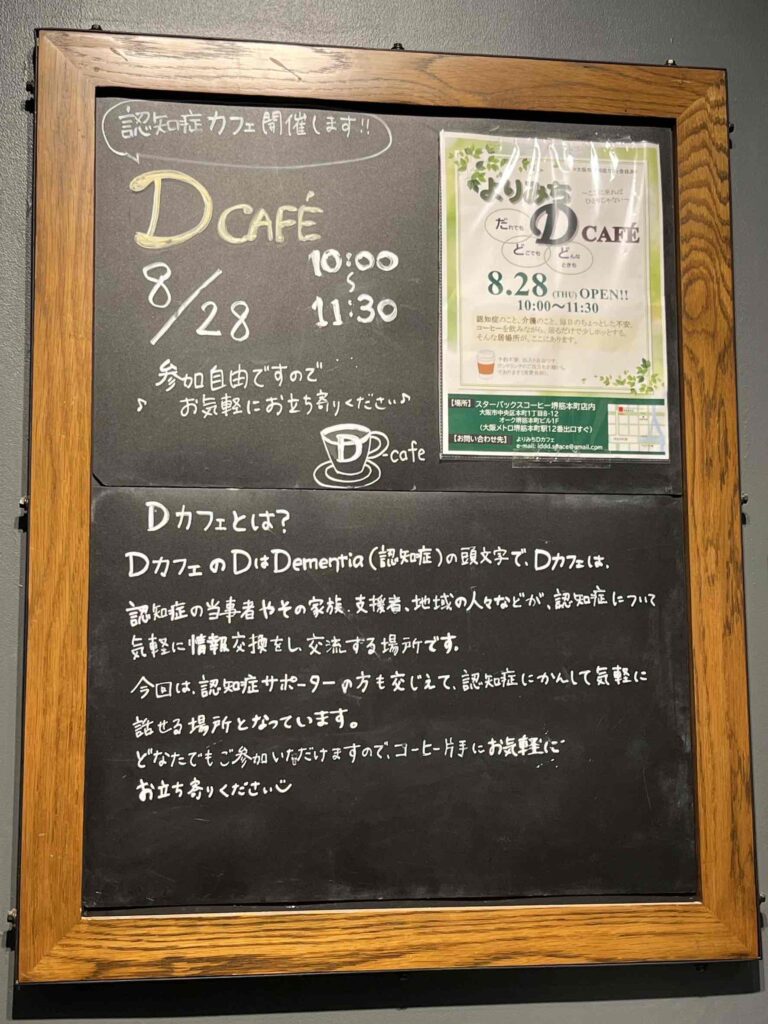 認知症カフェ開催します!!
D CAFÉ
8/28
10:00
〜
11:30
参加自由ですので
♪ お気軽にお立ち寄りください♪
D-cafe
よりみち
D CAFÉ
だれでも
どこでも
どんな
ときも
8.28 (THU) OPEN!!
10:00〜11:30
認知症のこと、介護のこと、毎日のちょっとした不安。
コーヒーを飲みながら、
そんな居場所が、ここにあります。
【場所】スターバックスコーヒー堺筋本町店内
大阪市中央区本町1丁目8-12
オーク堺筋本町ビル1F
(大阪メトロ堺筋本町駅12番出口すぐ)
【お問い合わせ先】よりみちDカフェ
Dカフェとは?
DカフェのDはDementia(認知症)の頭文字で、Dカフェは、
認知症の当事者やその家族、支援者、地域の人々などが、認知症について
気軽に情報交換をし、交流する場所です。
今回は、認知症サポーターの方も交じえて、認知症にかんして気軽に
話せる場所となっています。
どなたでもご参加いただけますので、コーヒー片手にお気軽に
お立ち寄りください